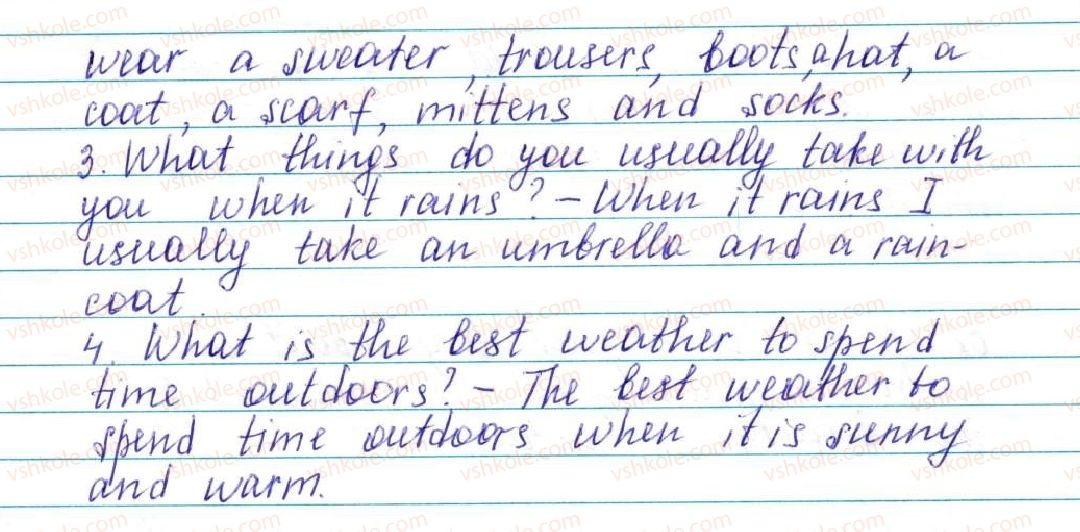 wear a sweater, trousers, boots, a hat, a
coat, a scarf, mittens and socks.
3. What things do you usually take with
you when it rains? - When it rains I
usually take an umbrella and a rain-
coat.
4. What is the best weather to spend
time outdoors? - The best weather to
spend time outdoors when it is sunny
and warm.